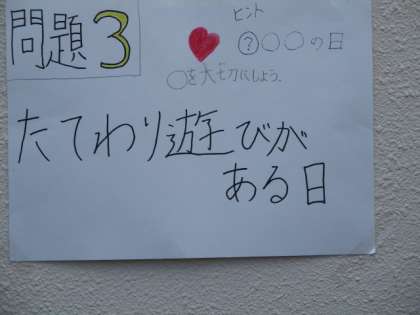 問題3
ヒント
?○○の日
○を大切にしよう。
たてわり遊びが
ある日